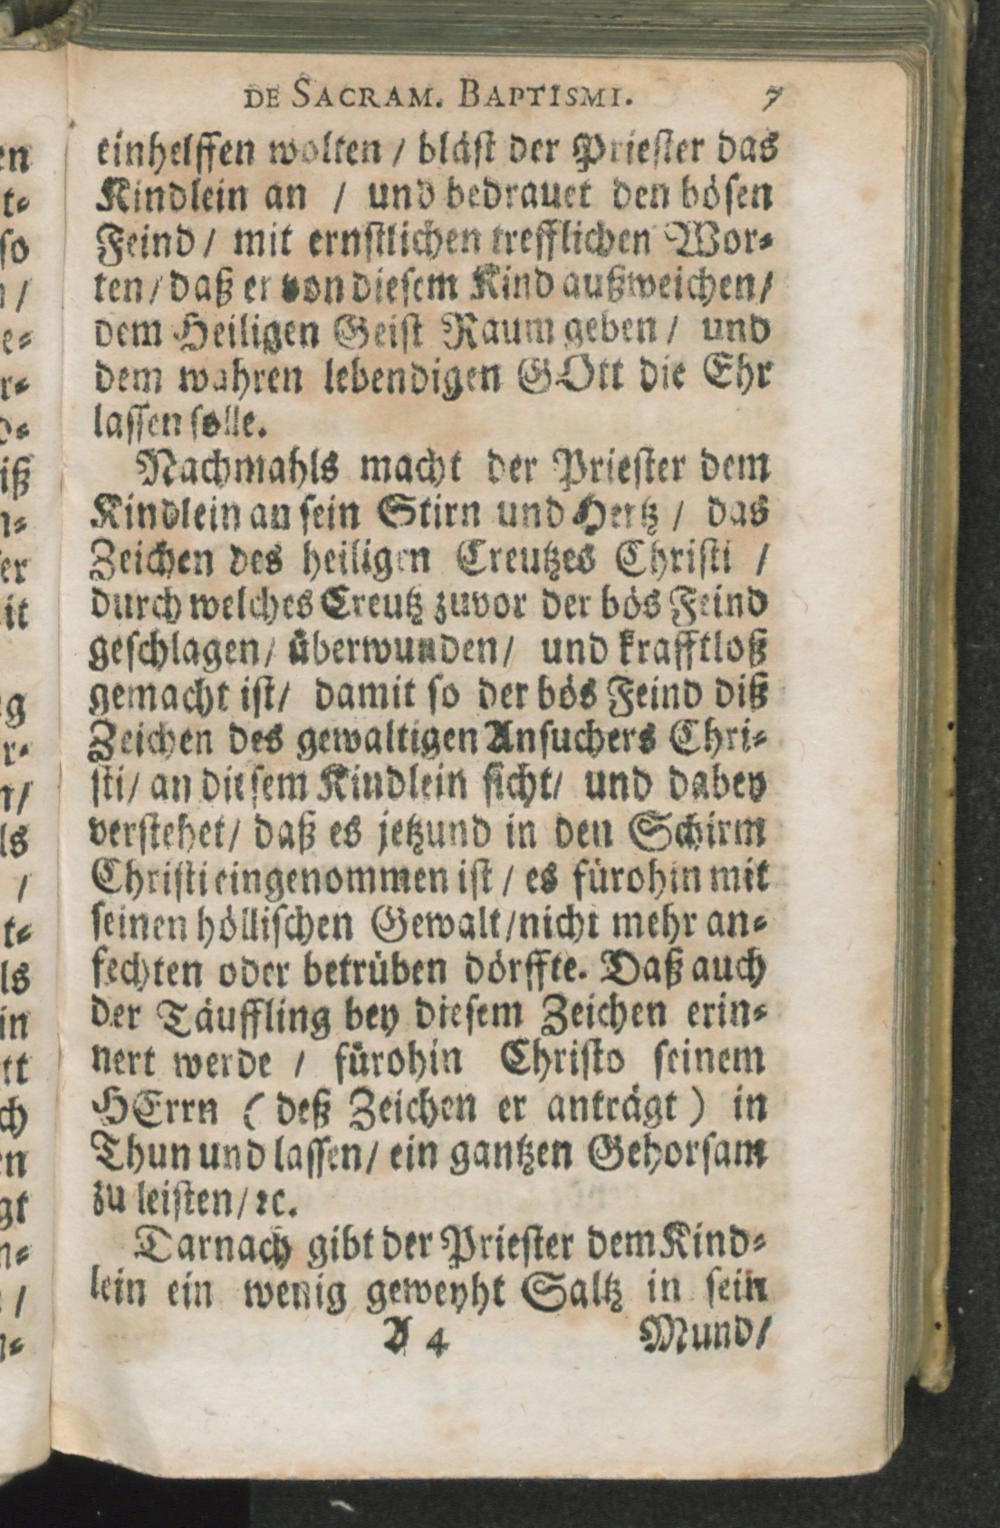 DE SACRAM. BAPTISMI. 7
einhelffen wolten / bläst der Priester das
Kindlein an / und bedrauet den bösen
Feind / mit ernstlichen trefflichen Wor⸗
ten / daß er von diesem Kind außweichen /
dem Heiligen Geist Raum geben / und
dem wahren lebendigen GOtt die Ehr
lassen solle.
Nachmahls macht der Priester dem
Kindlein an sein Stirn und Hertz / das
Zeichen des heiligen Creutzes Christi /
durch welches Creutz zuvor der bös Feind
geschlagen / überwunden / und krafftloß
gemacht ist / damit so der bös Feind diß
Zeichen des gewaltigen Ansuchers Chri⸗
sti / an diesem Kindlein sicht / und dabey
verstehet / daß es jetzund in den Schirm
Christi eingenommen ist / es fürohin mit
seinen höllischen Gewalt / nicht mehr an⸗
fechten oder betrüben dörffte. Daß auch
der Täuffling bey diesem Zeichen erin⸗
nert werde / fürohin Christo seinem
HErrn ( deß Zeichen er anträgt ) in
Thun und lassen / ein gantzen Gehorsam
zu leisten / ꝛc.
Darnach gibt der Priester dem Kind⸗
lein ein wenig geweyht Saltz in sein
A 4 Mund /